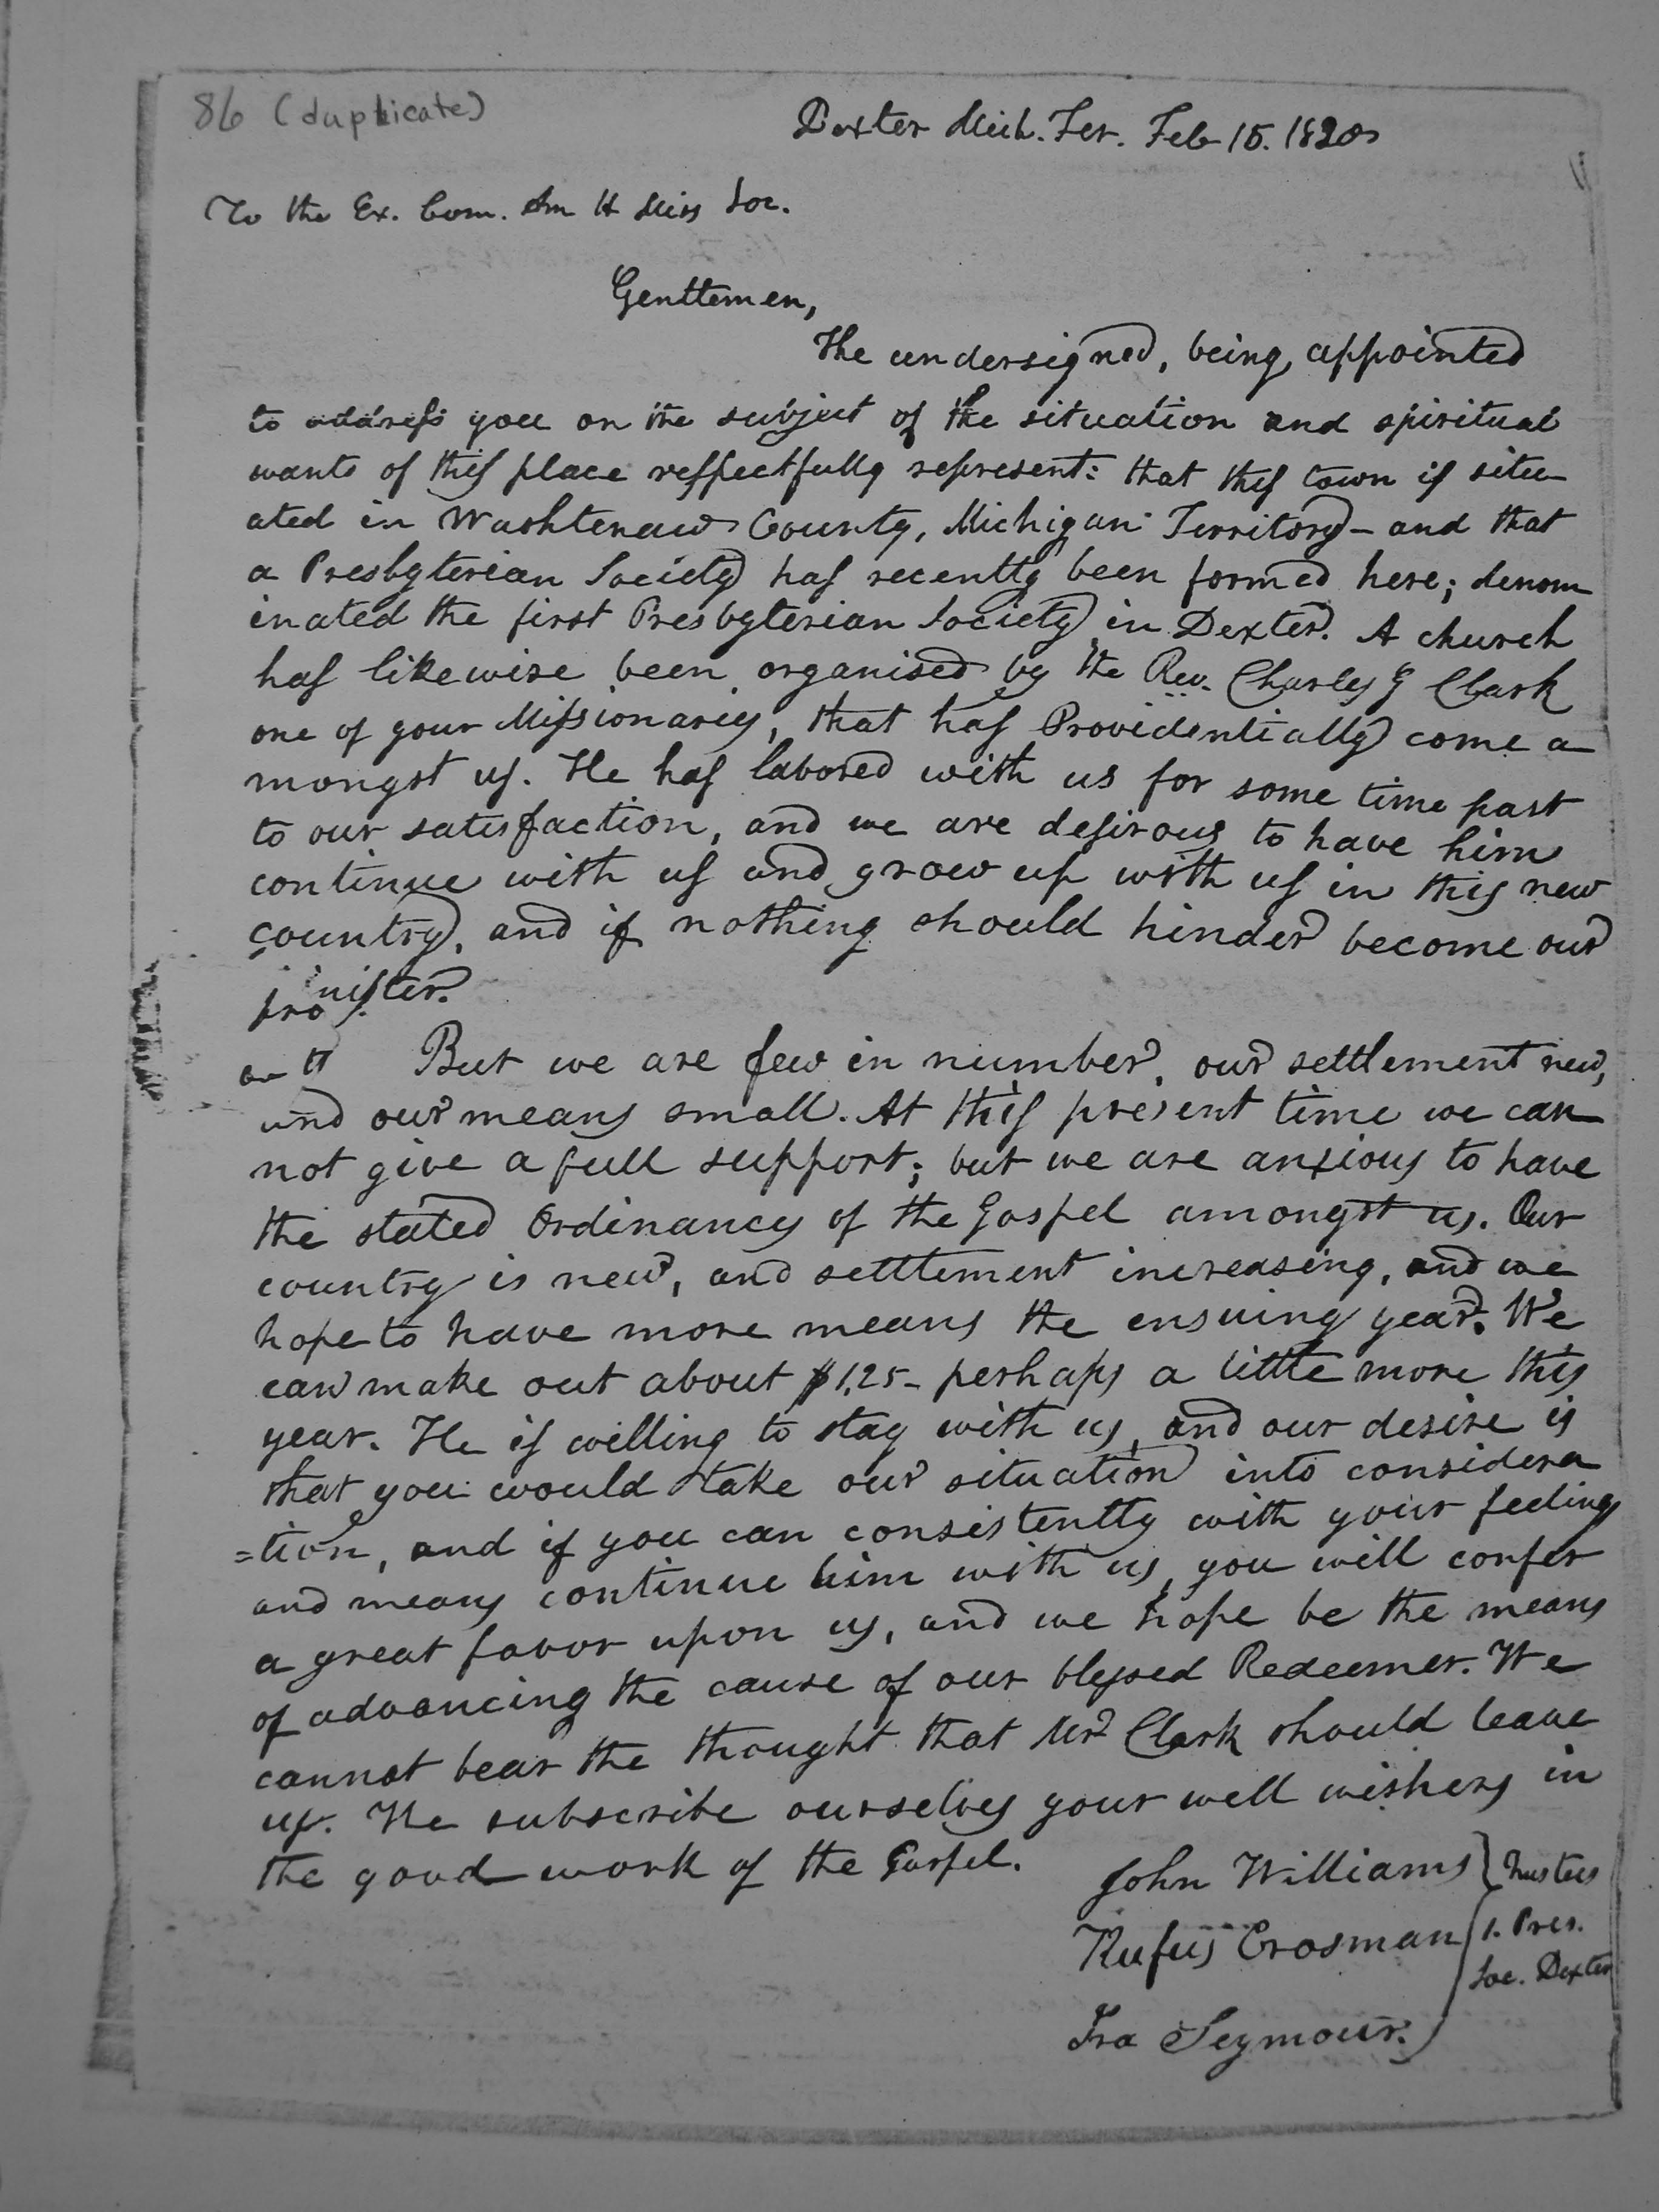 86 (duplicate)
Dexter Mich. Ter. Feb 15. 1828
To the Ex. Com. Am H Miss Soc.
Gentlemen,
The undersigned, being appointed
to address you on the subject of the situation and spiritual
wants of this place respectfully represent: that this town is situ
ated in Washtenaw County, Michigan Territory - and that
a Presbyterian Society has recently been formed here; denom
inated the first Presbyterian Society in Dexter. A church
has likewise been organised by the Rev. Charles G Clark
one of your Missionarys, that has Providentially come a
mongst us. He has labored with us for some time past
to our satisfaction, and we are desirous to have him
continue with us and grow up with us in this new
country, and if nothing should hinder become our
nister.
But we are few in number, our settlement new,
and our means small. At this present time we can
not give a full support; but we are anxious to have
the stated Ordinancys of the Gospel amongst us. Our
country is new, and settlement increasing, and we
hope to have more means the ensuing year. We
can make out about $1,25- perhaps a little more this
year. He is willing to stay with us, and our desire is
that you would take our situation into considera
=tion, and if you can consistently with your feelings
and means continue him with us, you will confer
a great favor upon us, and we hope be the means
of advancing the cause of our blessed Redeemer. We
cannot bear the thought that Mr Clark should leave
us. We subscribe ourselves your well wishers in
the good work of the Gospel.
John Williams } Trustees
Rufus Crosman 1. Pres.
Soc. Dexter
Ira Seymour.